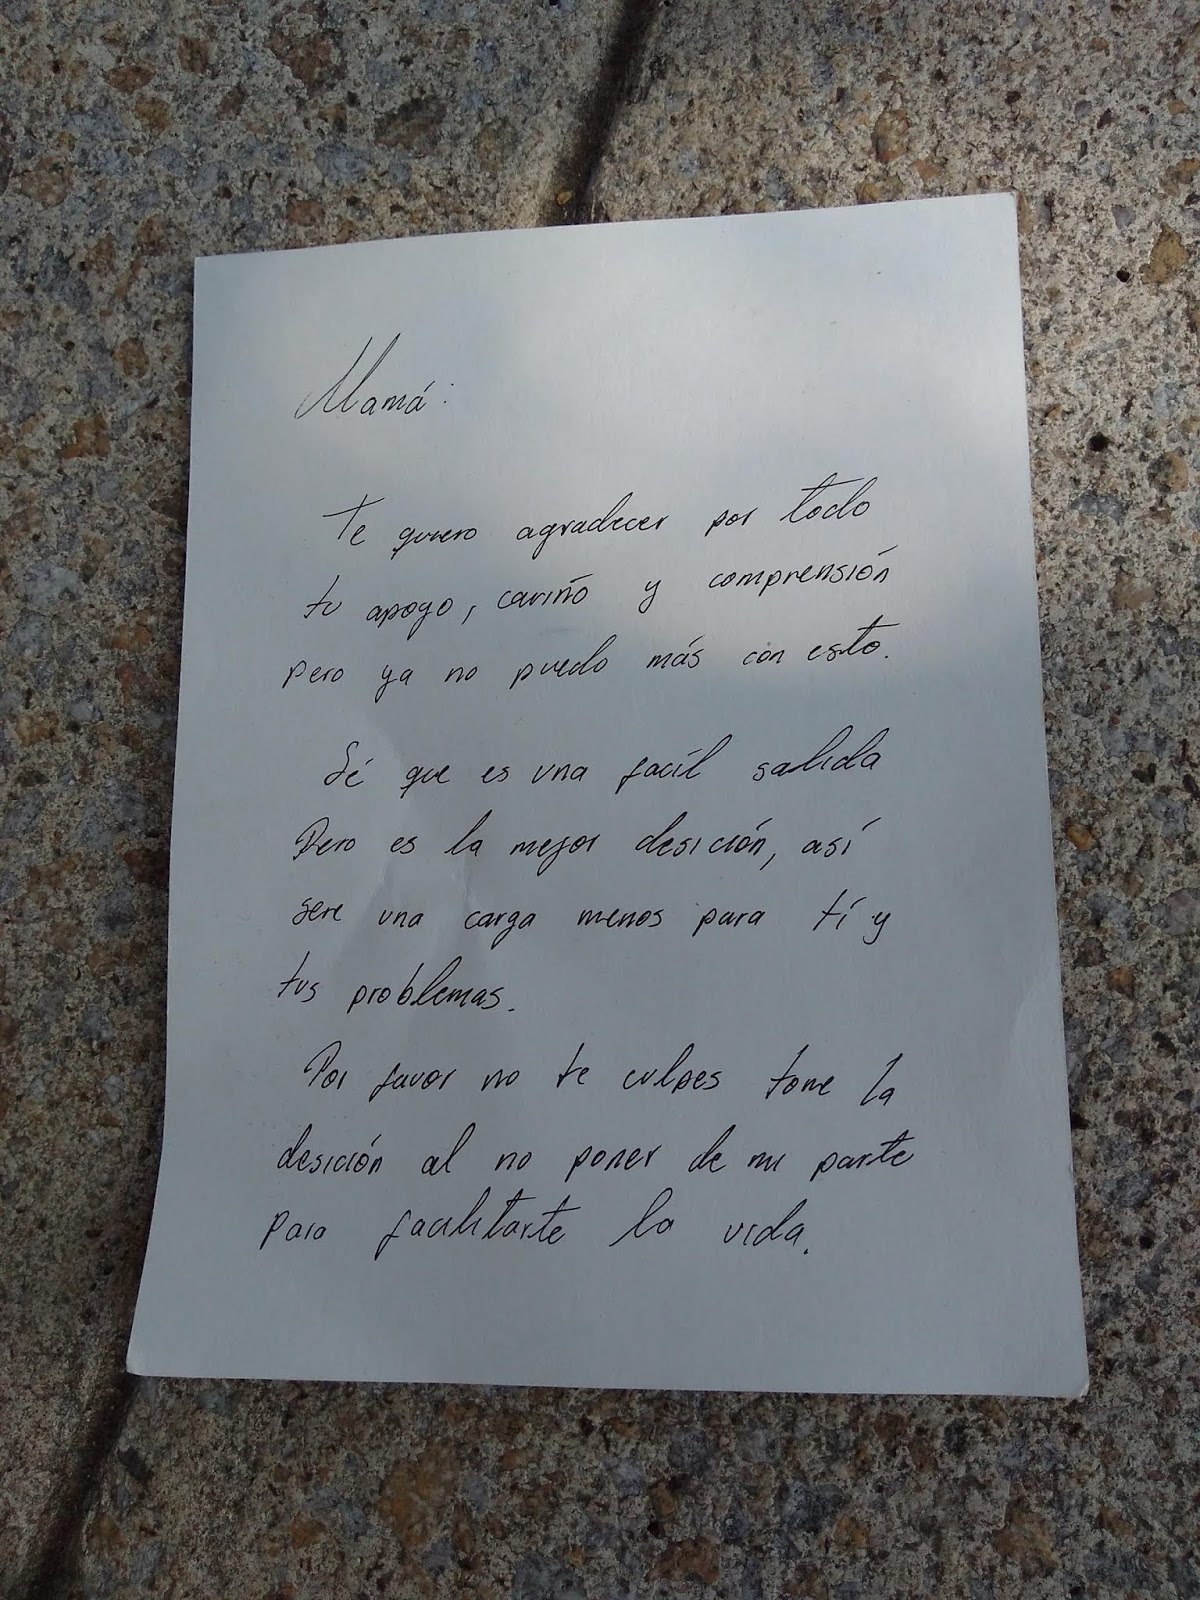 Mamá:
Te quiero agradecer por todo
tu apoyo, cariño y comprensión
pero ya no puedo más con esto.
Sé que es una facíl salida
Pero es la mejor desición, así
sere una carga menos para tí y
tus problemas.
Por favor no te culpes tome la
desición al no poner de mi parte
para facilitarte la vida.